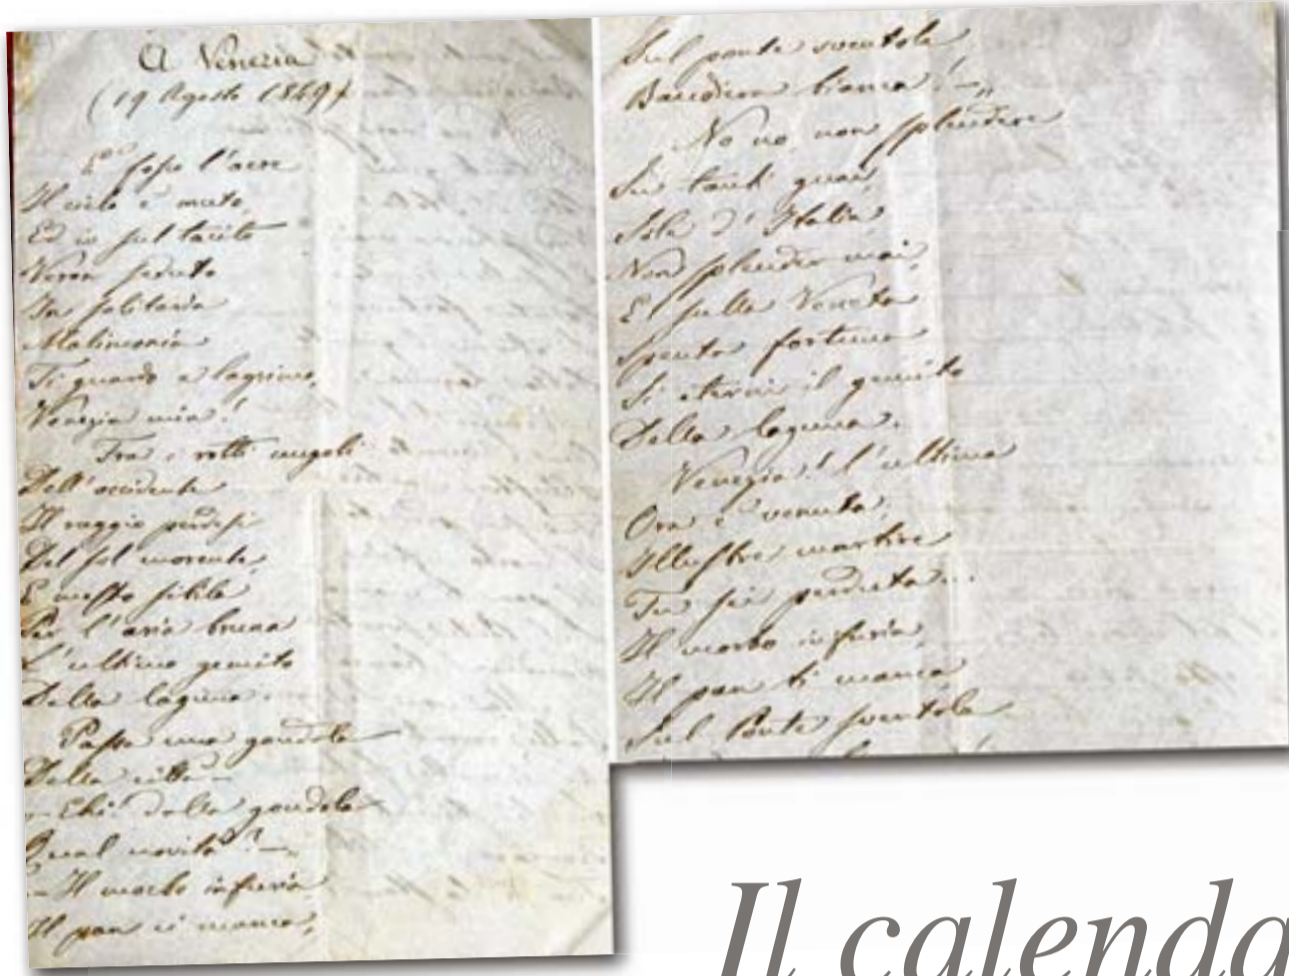 A Venezia
(19 Agosto 1849)
E' fosco l'aere
Il cielo è muto,
Ed io sul tacito
Veron seduto
In solitaria
Malinconia
Ti guardo e lagrimo,
Venezia mia!
Fra i rotti nugoli
Dell'occidente
Il raggio perdesi
Del sol morente
E mesto sibila
Per l'aria bruna
L'ultimo gemito
Della laguna.
Passa una gondola
Della città –
– Ehi! dalla gondola
Qual novità? –
– Il morbo infuria
Il pan ci manca,
Sul ponte sventola
Bandiera bianca! –„
No no, non splendere
Su tanti guai,
Sole d'Italia
Non splender mai,
E sulla Veneta
Spenta fortuna
Si eterni il gemito
Della laguna.
Venezia! l'ultima
Ora è venuta,
Illustre martire
Tu sei perduta...
Il morbo infuria,
Il pan ti manca
Sul Ponte sventola
Il calenda